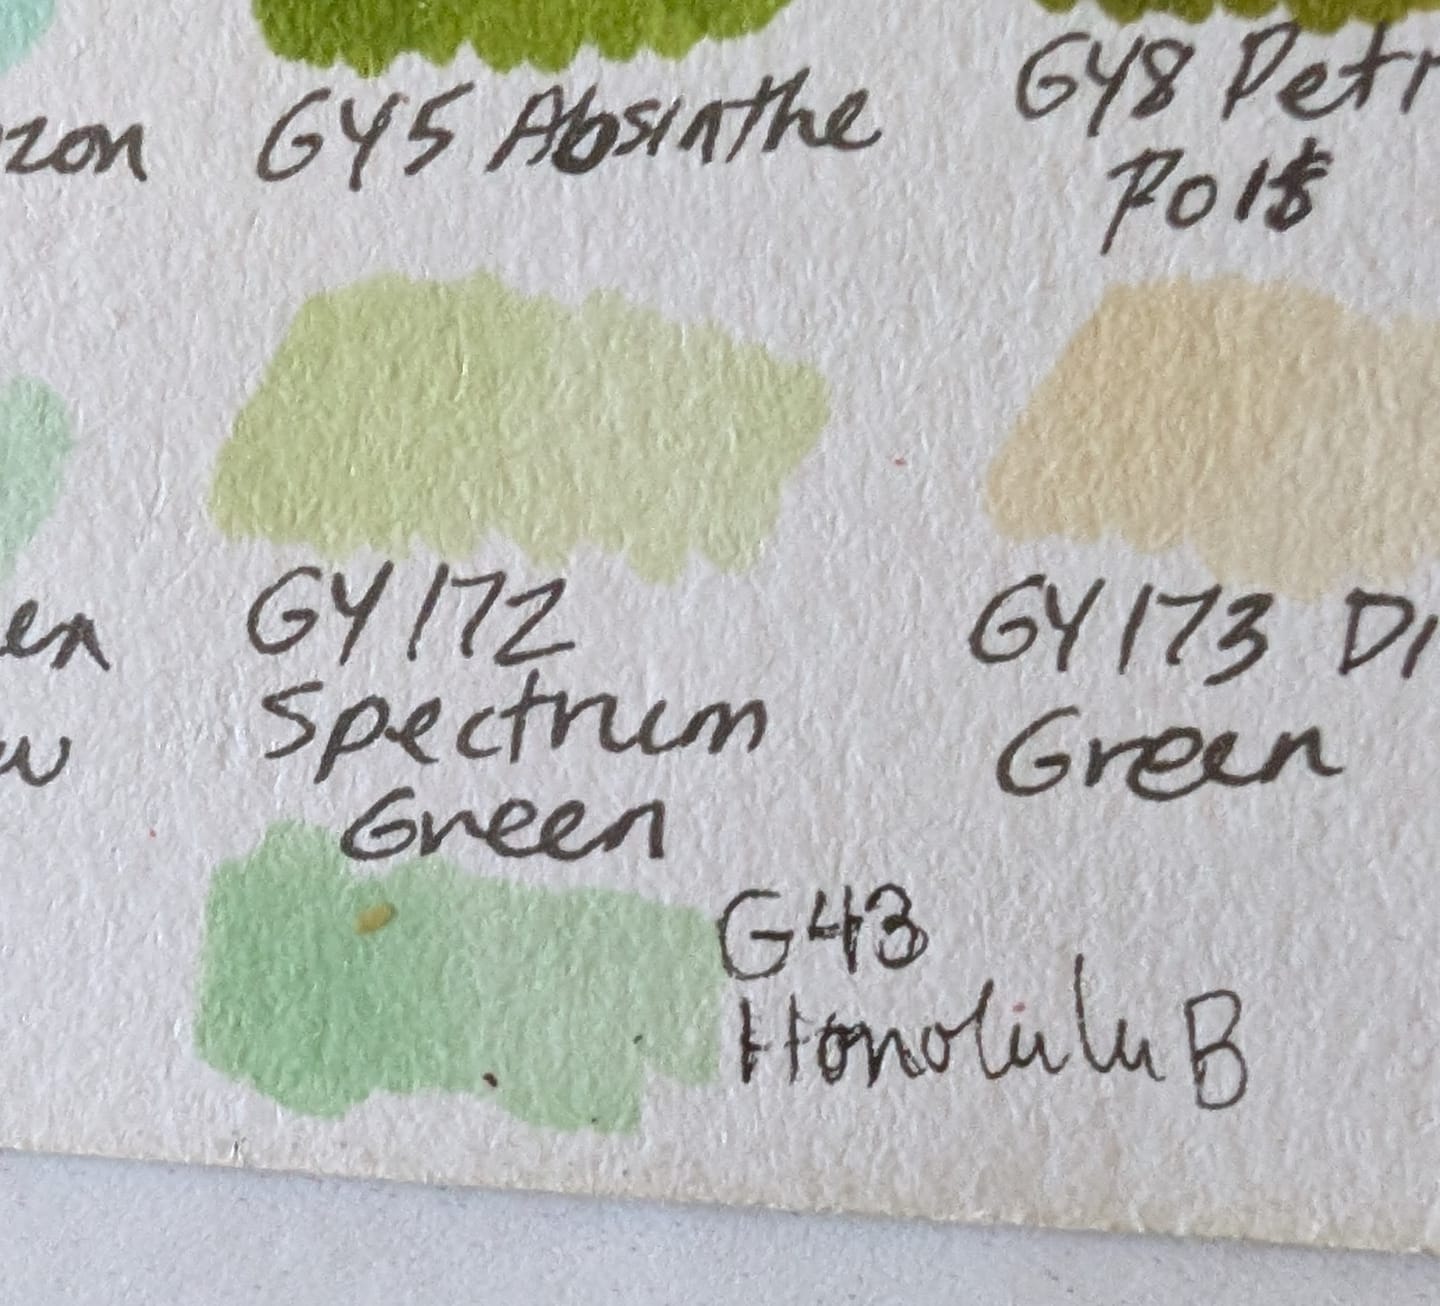 zon GY5 Absinthe GY8 Petr
Pois
en GY172 GY173 Di
w Spectrum Green
Green
G43
Honolulu B